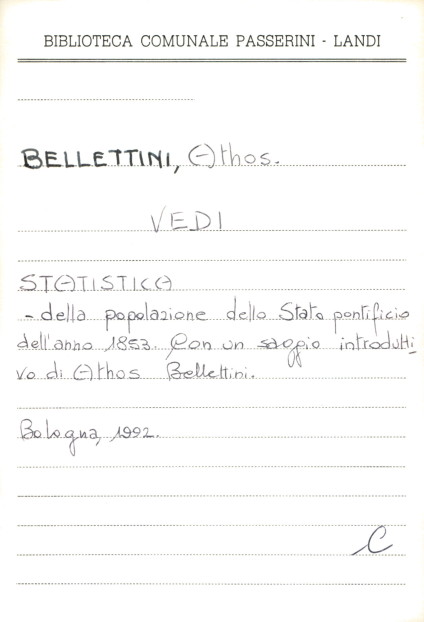 BIBLIOTECA COMUNALE PASSERINI - LANDI
BELLETTINI, Athos.
VEDI
STATISTICA
- della popolazione dello Stato pontificio
dell'anno 1853. Con un saggio introdutti
vo di Athos Bellettini.
Bologna, 1992.
C